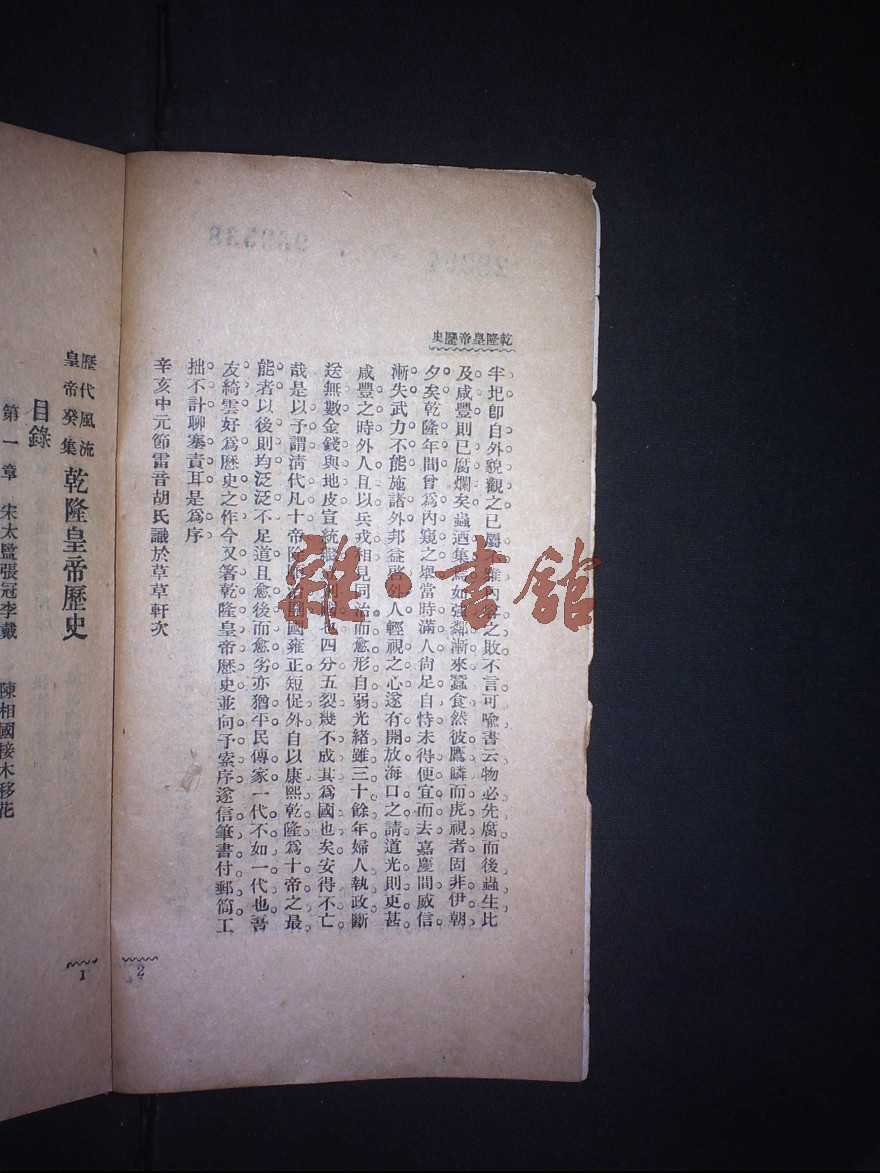 乾隆皇帝歷史
半圯卽自外貌觀之已屬不雅內容之敗不言可喩書云物必先腐而後蟲生比
及咸豐則已腐爛矣蟲迺集焉如强鄰漸來蠶食然彼鷹瞵而虎視者固非伊朝
夕矣乾隆年間曾爲內窺之舉當時滿人尙足自恃未得便宜而去嘉慶間威信
漸失武力不能施諸外邦益啓外人輕視之心遂有開放海口之請道光則更甚
咸豐之時外人且以兵戎相見同治而愈形自弱光緒雖三十餘年婦人執政斷
送無數金錢與地皮宣統 四分五裂幾不成其爲國也矣安得不亡
哉是以予謂淸代凡十帝除順治開國雍正短促外自以康熙乾隆爲十帝之最
能者以後則均泛泛不足道且愈後而愈劣亦猶平民傳家一代不如一代也吾
友綺雲好爲歷史之作今又箸乾隆皇帝歷史並向予索序遂信筆書付郵筒工
拙不計聊塞責耳是爲序
辛亥中元節雷音胡氏識於草草軒次
2
歷代風流
皇帝癸集
乾隆皇帝歷史
目錄
第一章 宋太監張冠李戴 陳相國接木移花
1
雜·書館